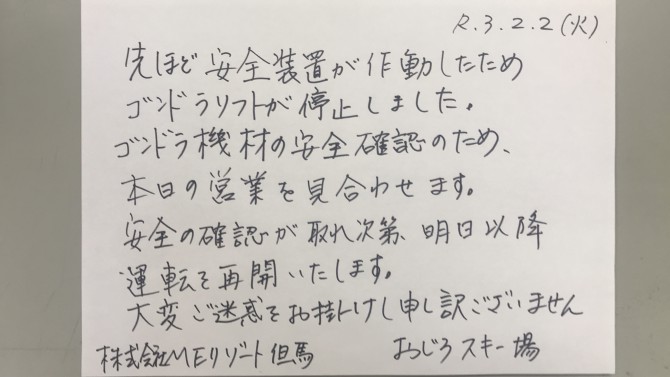 R.3.2.2(火)
先ほど安全装置が作動したため
ゴンドラリフトが停止しました。
ゴンドラ機材の安全確認のため、
本日の営業を見合わせます。
安全の確認が取れ次第 明日以降
運転を再開いたします。
大変ご迷惑をお掛けし申し訳ございません
株式会社MEリゾート但馬 おじろスキー場